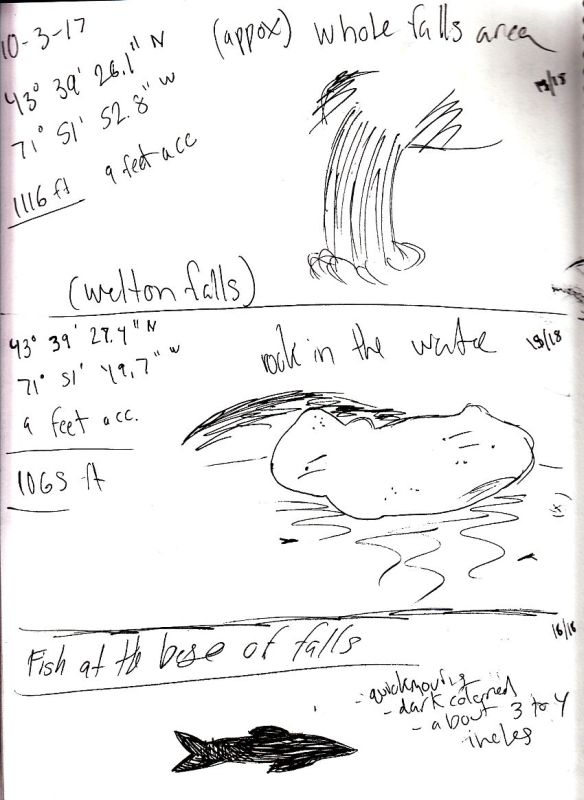 10-3-17
(appox) whole falls area
43° 39' 26.1" N
71° 51' 52.8" W
9 feet acc
1116 ft
(welton falls)
43° 39' 27.4" N
rock in the water
71° 51' 49.7" W
9 feet acc.
1065 ft
16/18
Fish at th base of falls
- quick moving
- dark colerned
- about 3 to 4
inches